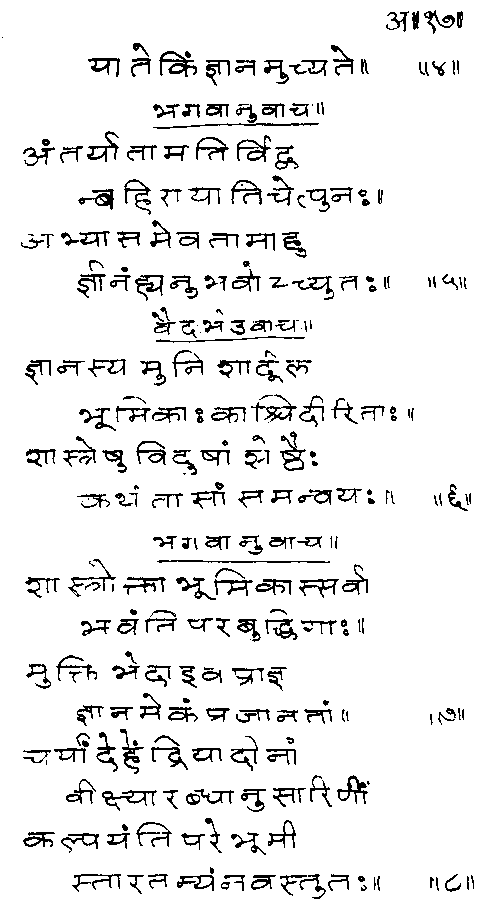 अ॥१७॥
या ते किं ज्ञानमुच्यते॥ ॥४॥
भगवानुवाच॥
अंतर्याता मतिर्विद्व
न्बहिरायाति चेत्पुनः॥
अभ्यासमेव तामाहु
र्ज्ञानंह्यनुभवोऽच्युतः॥ ॥५॥
वैदर्भउवाच॥
ज्ञानस्य मुनिशार्दूल
भूमिकाः काश्चिदीरिताः॥
शास्त्रेषु विदुषां श्रेष्ठैः
कथं तासां समन्वयः॥ ॥६॥
भगवानुवाच॥
शास्त्रोक्ता भूमिकास्सर्वा
भवंति परबुद्धिगाः॥
मुक्तिभेदा इव प्राज्ञ
ज्ञानमेकं प्रजानतां॥ ॥७॥
चर्यां देहेंद्रियादीनां
वीक्ष्यारब्धानुसारिणीं
कल्पयंति परे भूमी
स्तारतम्यंनवस्तुतः॥ ॥८॥